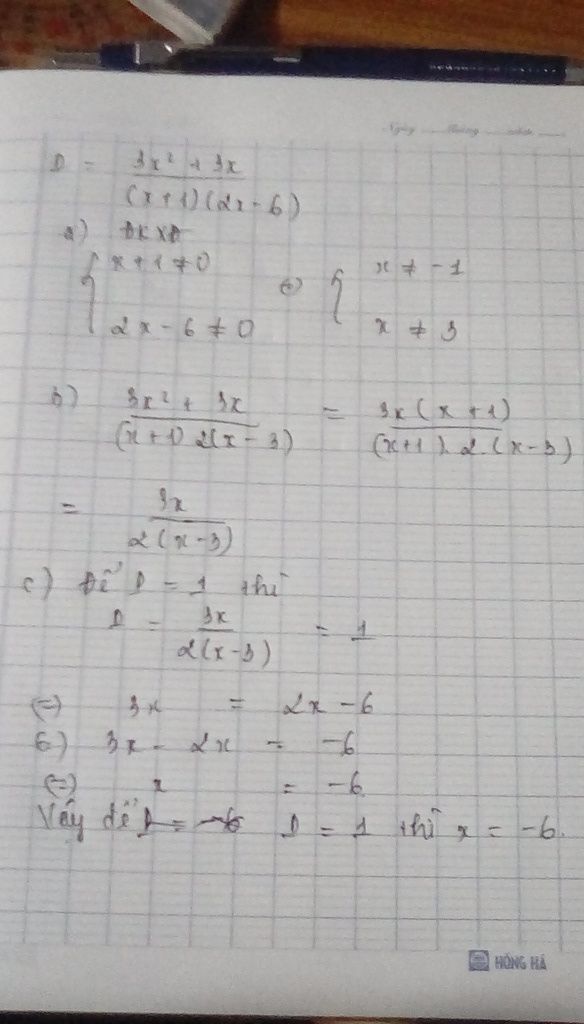 Ngày
D = (3x² + 3x) / ((x+1)(2x-6))
a) ĐKXĐ
{ x + 1 ≠ 0 (=) { x ≠ -1
2x - 6 ≠ 0 x ≠ 3
b) (3x² + 3x) / ((x+1) 2(x-3)) = 3x(x+1) / ((x+1).2(x-3))
= 3x / (2(x-3))
c) Để D = 1 thì
D = 3x / (2(x-3)) = 1
(=) 3x = 2x - 6
(=) 3x - 2x = -6
(=) x = -6
Vậy để D = 1 thì x = -6.
HỒNG HÀ